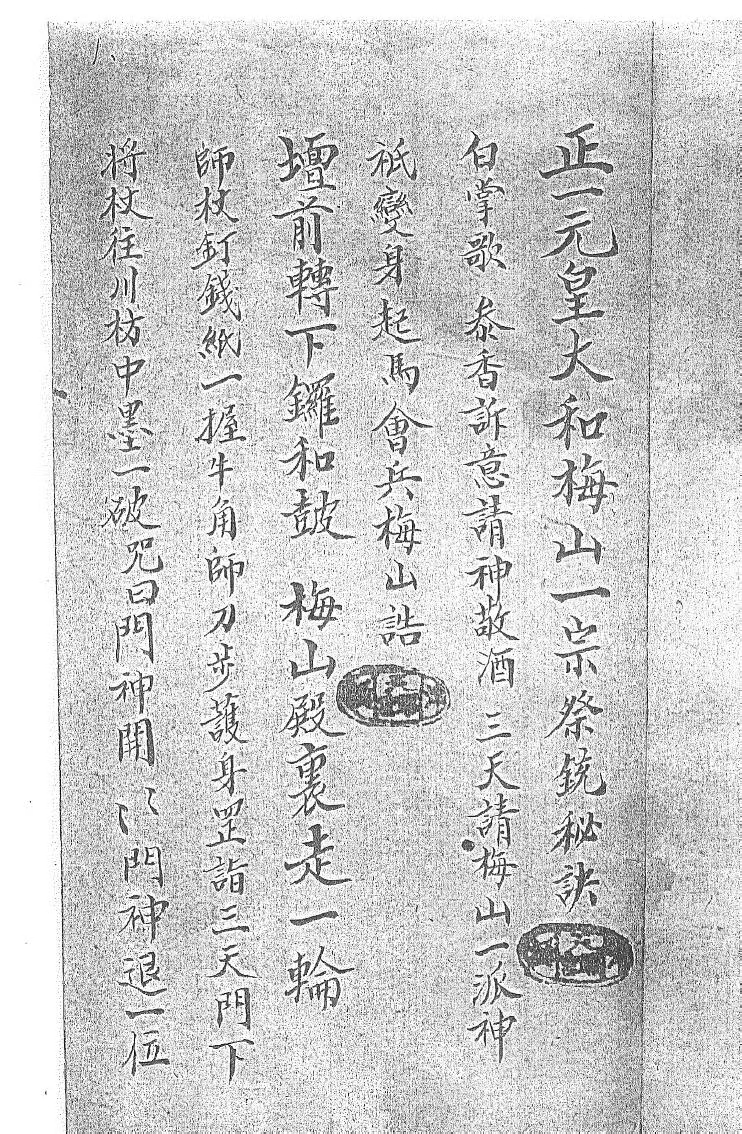 正一元皇大和梅山一宗祭銃秘訣
白掌歌 叅香訴意請神敬酒 三天請梅山一派神
祇變身起馬會兵梅山誥
壇前轉下鑼和鼓 梅山殿裏走一輪
師杖釘錢紙一握牛角師刀步護身罡詣三天門下
将杖往川枋中墨一破咒曰門神開〻門神退一伍